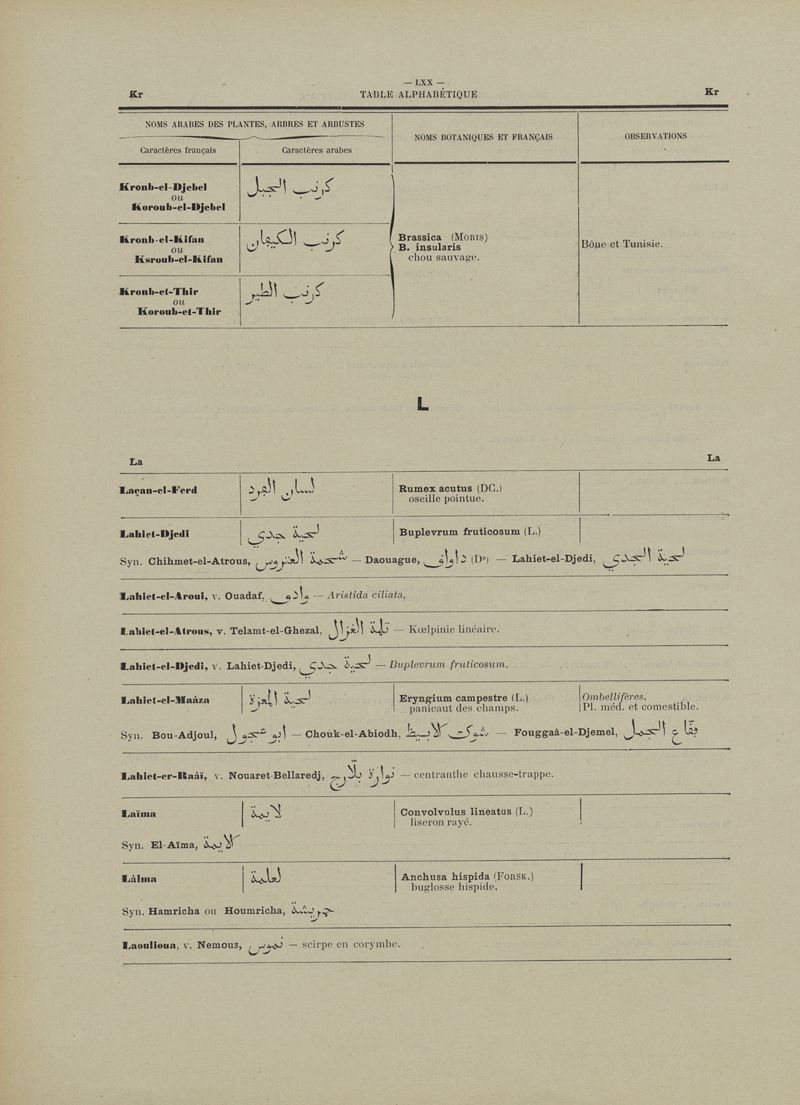 — LXX —
Kr TABLE ALPHABÉTIQUE Kr
NOMS ARABES DES PLANTES, ARBRES ET ARBUSTES
NOMS BOTANIQUES ET FRANÇAIS
OBSERVATIONS
Caractères français
Caractères arabes
Kronb-el-Djebel
ou
Koroub-el-Djebel
كرنب الجبل
Kronb-el-Kifan
ou
Ksroub-el-Kifan
كرنب الكيفان
Kronb-et-Thir
ou
Koroub-et-Thir
كرنب الطير
Brassica (MORIS)
B. insularis
chou sauvage.
Bône et Tunisie.
L
La La
Laçan-el-Ferd
لسان الفرد
Rumex acutus (DC.)
oseille pointue.
Lahiet-Djedi
لحية جدي
Buplevrum fruticosum (L.)
Syn. Chihmet-el-Atrous, شحيمة العتروس — Daouague, (Dᵉ) — Lahiet-el-Djedi, لحية الجدي
Lahiet-el-Aroui, v. Ouadaf, — Aristida ciliata.
Lahiet-el-Atrous, v. Telamt-el-Ghezal, الغزال — Kœlpinie linéaire.
Lahiet-el-Djedi, v. Lahiet-Djedi, لحية جدي — Buplevrum fruticosum.
Lahiet-el-Maâza
لحية المعزة
Eryngium campestre (L.)
panicaut des champs.
Ombellifères.
Pl. méd. et comestible.
Syn. Bou-Adjoul, — Chouk-el-Abiodh, — Fouggaâ-el-Djemel, فقاع الجمل
Lahiet-er-Raâï, v. Nouaret-Bellaredj, نوارة بلارج — centranthe chausse-trappe.
Laïma
لايمة
Convolvulus lineatus (L.)
liseron rayé.
Syn. El-Aïma, الايمة
Lâlma
Anchusa hispida (FORSK.)
buglosse hispide.
Syn. Hamricha ou Houmricha, حمريشة
Laoulioua, v. Nemous, نموس — scirpe en corymbe.